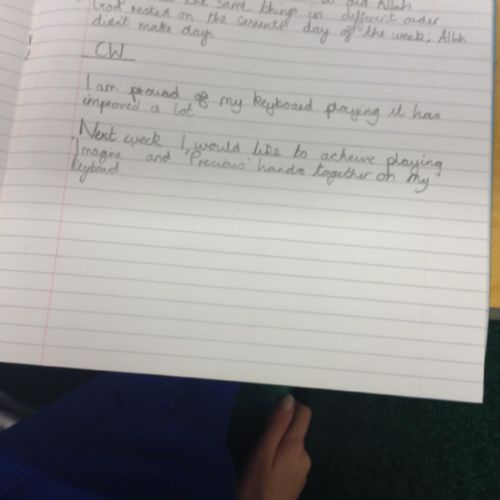 the same things in different order
God rested on the seventh day of the week; Allah
didn't make day.
CW
I am proud of my keyboard playing it has
improved a lot
Next week I, would like to acheive playing
'Imagine' and 'Precious' hands together on my
keyboard